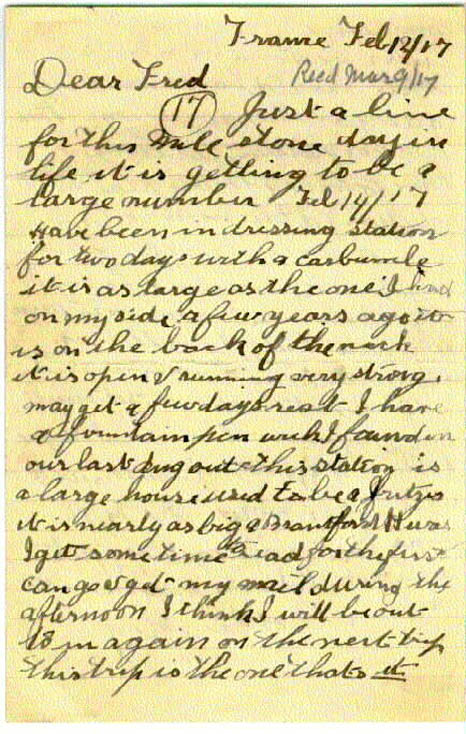 France Feb 12/17
Dear Fred Recd Mar 9/17
(17) Just a line
for this mile stone day in
life it is getting to be a
large number Feb 14/17
Have been in dressing station
for two days with a carbuncle
it is as large as the one I had
on my side a few years ago it
is on the back of the neck
it is open & running very strong.
may get a few days rest I have
a fountain pen wich I found in
our last dug out this station is
a large house used to be a Fritzes
it is nearly as big a Brantford
I get some time to read for the first
can go & get my mail during the
afternoon I think I will be out
to in again on the next trip
this trip is the one thats it